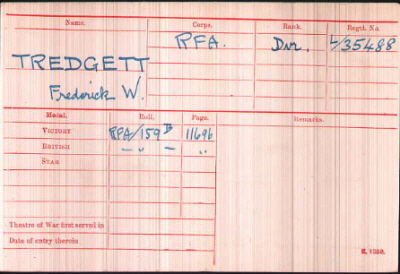 Name. Corps. Rank. Regtl. No.
TREDGETT RFA. Dvr. L/35488
Frederick W.
Medal. Roll. Page. Remarks.
VICTORY RFA/159B 11696
BRITISH — " — "
STAR
Theatre of War first served in
Date of entry therein
K. 1380.